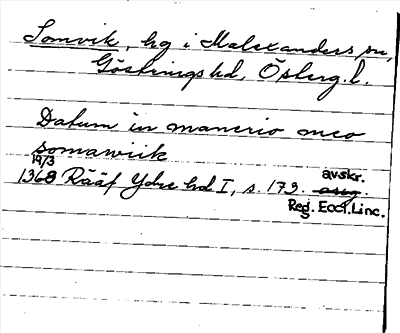 Somvik, hg i Malexanders sn,
Göstrings hd, Österg. l.
Datum in manerio meo
somawiik
19/3
1368 Rääf Ydre hd I, s. 173. avskr. orig.
Reg. Eccl. Linc.